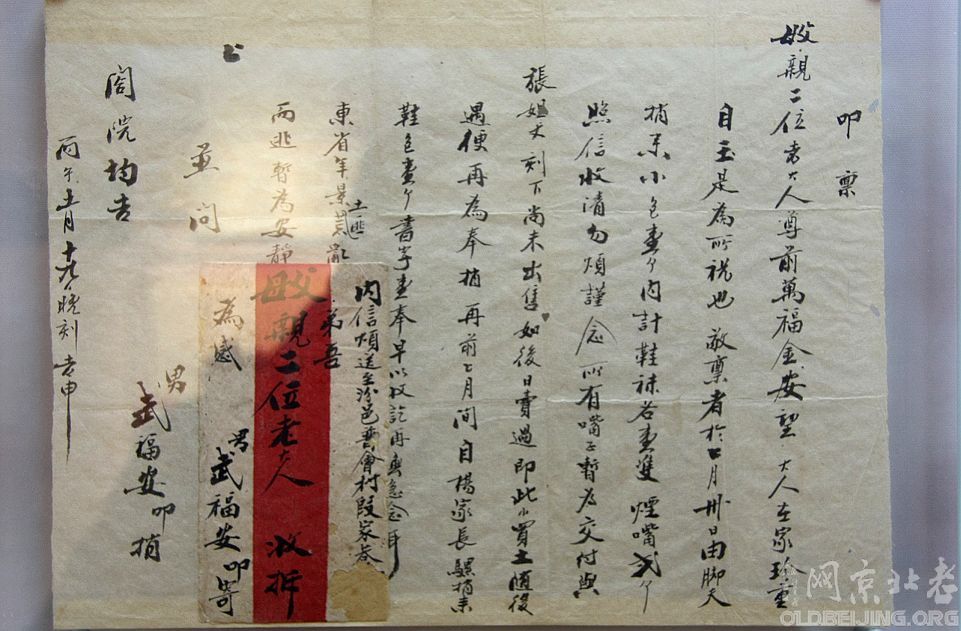 叩禀
父親二位老大人尊前萬福金安望 大人在家珍重
自玉是為所祝也 敬禀者於七月卅日由脚夫
捎來小包壹个內計鞋袜各壹雙 煙嘴弍个
照信收清勿煩謹念 所有嘴子暫為交付與
張姐丈刻下尚未出售如後日賣過即此小買土随後
遇便再為奉捎 再前七月間自楊家長騾捎來
鞋包壹个 書字壹奉早以收訖再無念耳
東省年景荒亂
土匪
而逃暫為安静
弟吾
並問
閤院均吉
男 武福安叩捎
丙午 月十 晚刻 申
內信煩送至汾邑普會村段家巷
父親二位老大人 收拆
為感 男武福安叩寄
老北京网
OLDBEIJING.ORG